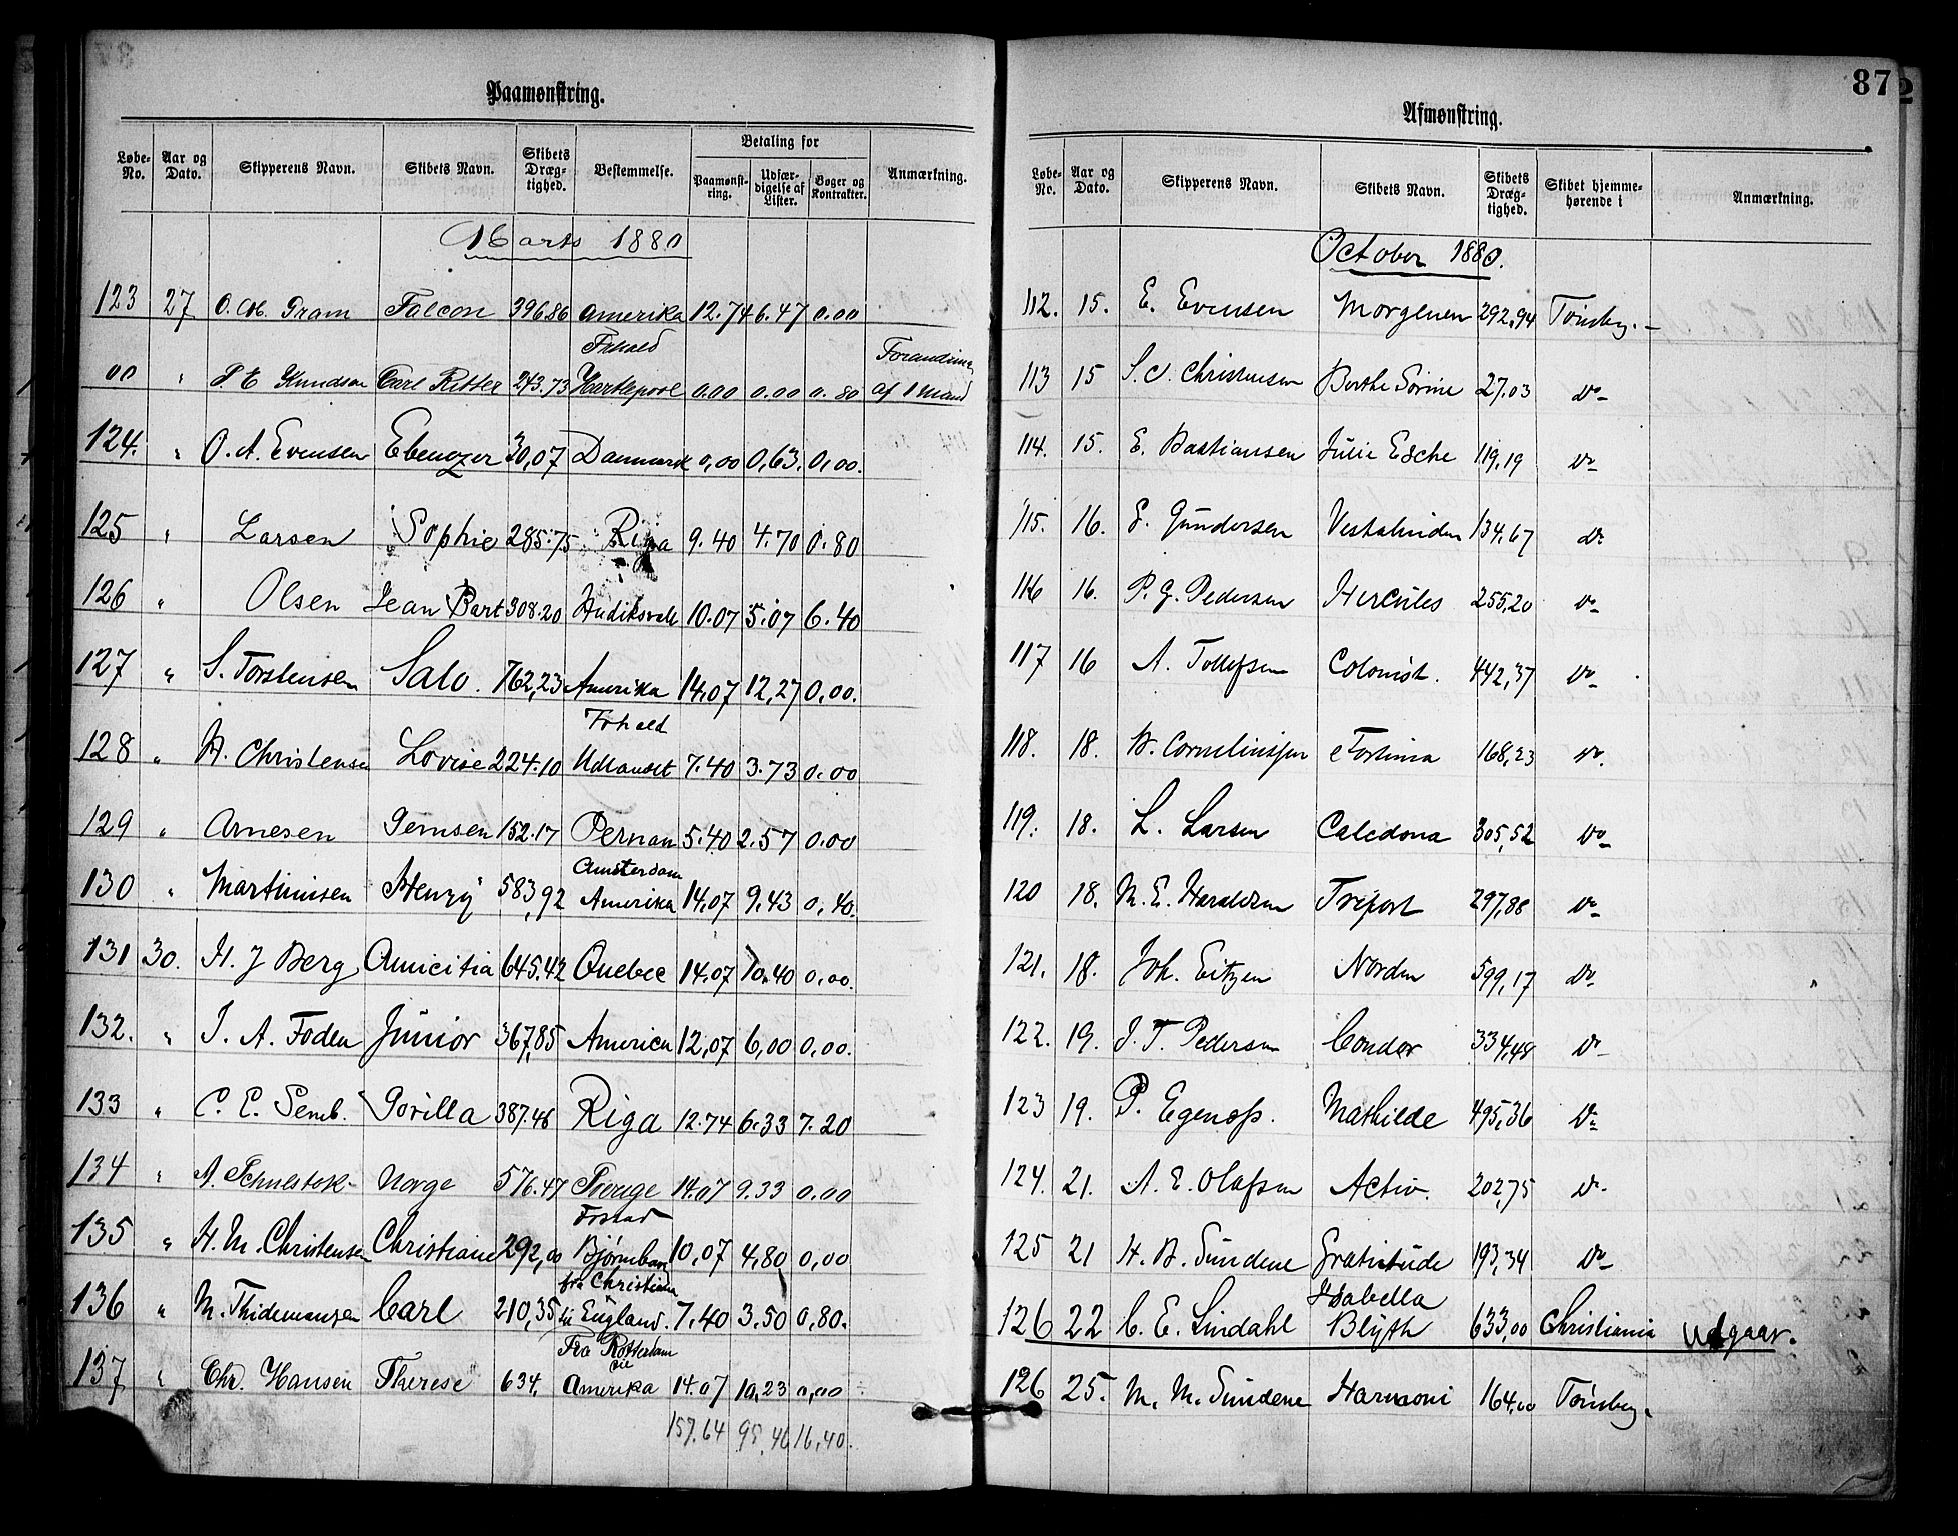 87
Paamønstring.
Løbe-No. Aar og Dato. Skipperens Navn. Skibets Navn. Skibets Dræg-tighed. Bestemmelse. Betaling for Paamønst-ring. Udfær-digelse af Lister. Bøger og Kontrakter. Anmærkning.
Marts 1880
123 27 O. M. Gram Falcon 396.86 Amerika 12.74 6.47 0.00
Frhald
00 " P E Knudsen Carl Ritter 243.73 Hartlepool 0.00 0.00 0.80 af 1 Mand
124. " O. A. Evensen Ebenezer 30,07 Danmark 0,00 0,63. 0,00.
125 " Larsen Sophie 285.75 Riga 9.40 4.70 0.80
126 " Olsen Jean Bart 308.20 Hudiksvall 10.07 5.07 6.40
127 " S. Torstensen Salo. 762,23 Amerika 14,07 12,27 0,00.
Frhald
128 " H. Christensen Lovise 224.10 Udlandet 7.40 3.73 0.00
129 " Arnesen Gemsen 152.17 Pernau 5.40 2.57 0.00
Amsterdam
130 " Martinusen Henry 583,92 Amerika 14,07 9,43 0,40.
131 30. H. J Berg Amicitia 645.42 Quebec 14.07 10.40 0,00.
132. " I. A. Foden Junior 367,85 America 12,07 6,00 0,00.
133 " C. E. Semb. Gorilla 387.46 Riga 12.74 6.33 7.20
134 " A. Norge 576.47 Sverige 14.07 9.33 0.00
135 " H. M. Christensen Christiane 292,00 10,07 4,80 0,00
fra Christiania
136 " M. Thidemansen Carl 210,35 til England. 7,40 3.50 0,80.
Fra Rotterdam
til
137 " Chr. Hansen Therese 634. Amerika 14.07 10,23 0,00
157.64 95,46 16,40.
Afmønstring.
Løbe-No. Aar og Dato. Skipperens Navn. Skibets Navn. Skibets Dræg-tighed. Skibet hjemme-hørende i Anmærkning.
October 1880.
112. 15. E. Evensen Morgenen 292,94 Tønsbg.
113 15 S. C. Christensen Berthe Sørine 27.03 do
114. 15. E. Bastiansen Julie Esche 119,19 do
115. 16. G. Gundersen Vestalinden 134,67 do
116 16. P. G. Pedersen Hercules 255,20 do
117 16 A. Tollefsen Colonist. 442,37 do
118. 18. B. Corneliussen Fortuna 168,23 do.
119. 18. L. Larsen Caledonia 305,52 do
120 18. M. E. Haraldsen Treport 297,88 do
121. 18. Joh. Eitzen Norden 599,17 do
122. 19. J. T. Pedersen Condor 334,48 do
123 19. P. Egenæss. Mathilde 495,36 do
124. 21. A. E. Olafsen Activ. 202,75 do
125 21 H. B. Sundene Gratitude 193,34 do
Isabella
126 22 C. E. Lindahl Blyth 633,00 Christiania Udgaar.
126 25. M. M. Sundene Harmoni 164,00 Tønsbg.